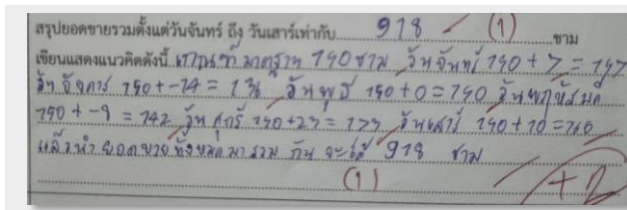 สรุปยอดขายรวมตั้งแต่วันจันทร์ ถึง วันเสาร์เท่ากับ 918 (1) ชาม
เขียนแสดงแนวคิดดังนี้ เกณฑ์มาตฐาน 150 ชาม วันจันทร์ 150 + 7 = 157
วันอังคาร 150 + -14 = 136 วันพุธ 150 + 0 = 150 วันพฤหัสบดี
150 + -8 = 142 วันศุกร์ 150 + 23 = 173 วันเสาร์ 150 + 10 = 160
แล้วนำยอดขายทั้งหมดมารวมกันจะได้ 918 ชาม
(1) +2